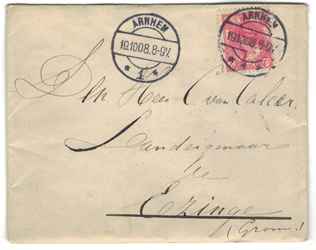 ARNHEM
19.10.08.8-9V.
ARNHEM
19.10.08.8-9V.
Den Heer C. van
Landeigenaar
te
Ezinge